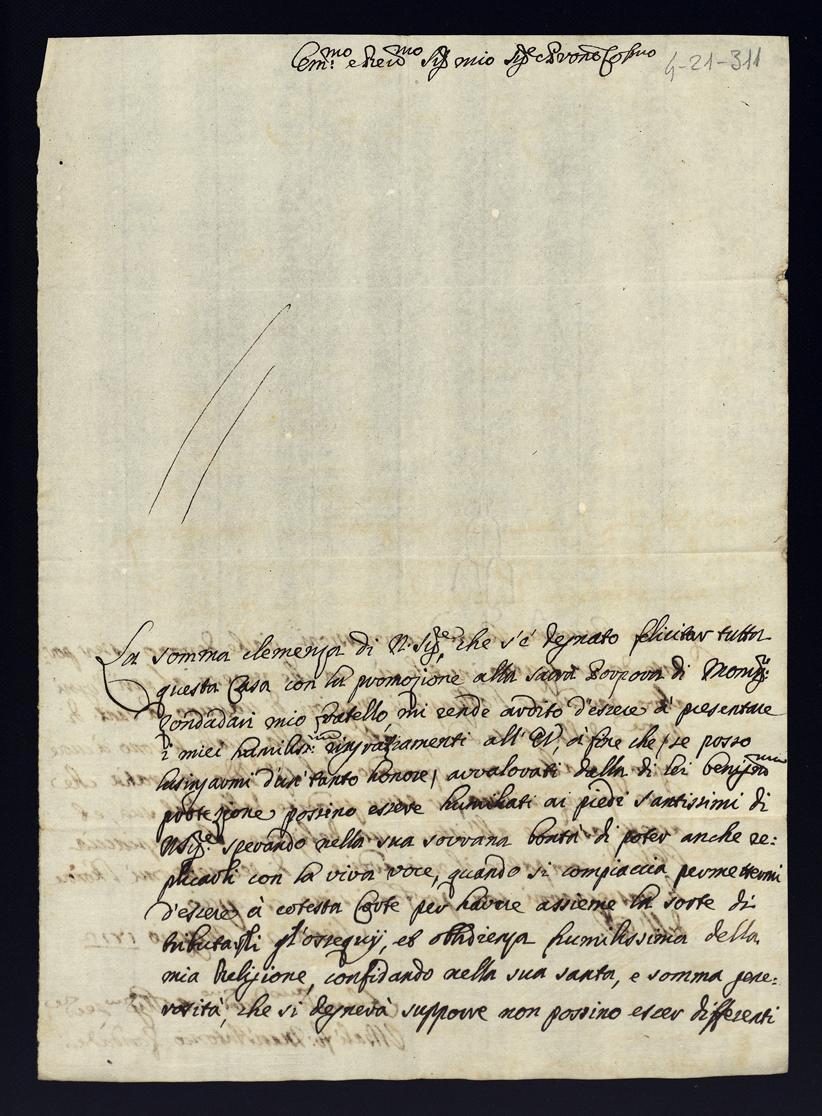 Em.mo e Rev.mo Sig.r mio Sig.re e Pron Col.mo
4-21-311
La somma clemenza di N. Sig.re, che s'è degnato felicitar tutta
questa Casa con la promozione alla sacra Porpora di Monsig.r
Zondadari mio fratello, mi rende ardito d'essere à presentare
i miei humiliss.mi ringraziamenti all' EV, à fine che, se posso
lusingarmi d'un' tanto honore, avvalorati dalla di lei benig.ma
protezione possino essere humiliati ai piedi santissimi di
N Sig.re sperando nella sua sovrana bontà di poter anche re:
plicarli con la viva voce, quando si compiaccia permettermi
d'essere à cotesta Corte per havere assieme la sorte di
tributargli gl'ossequij, et obbedienza humilissima della
mia Religione, confidando nella sua santa, e somma gene:
rosità, che si degnerà supporre non possino esser differenti